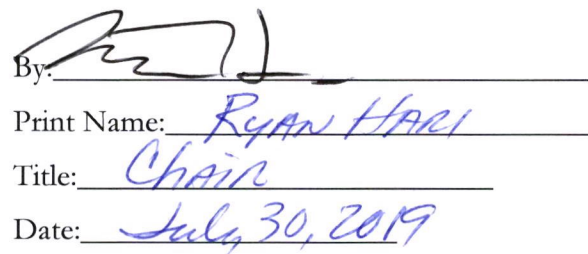 By:
Print Name: Ryan Hari
Title: Chair
Date: July, 30, 2019